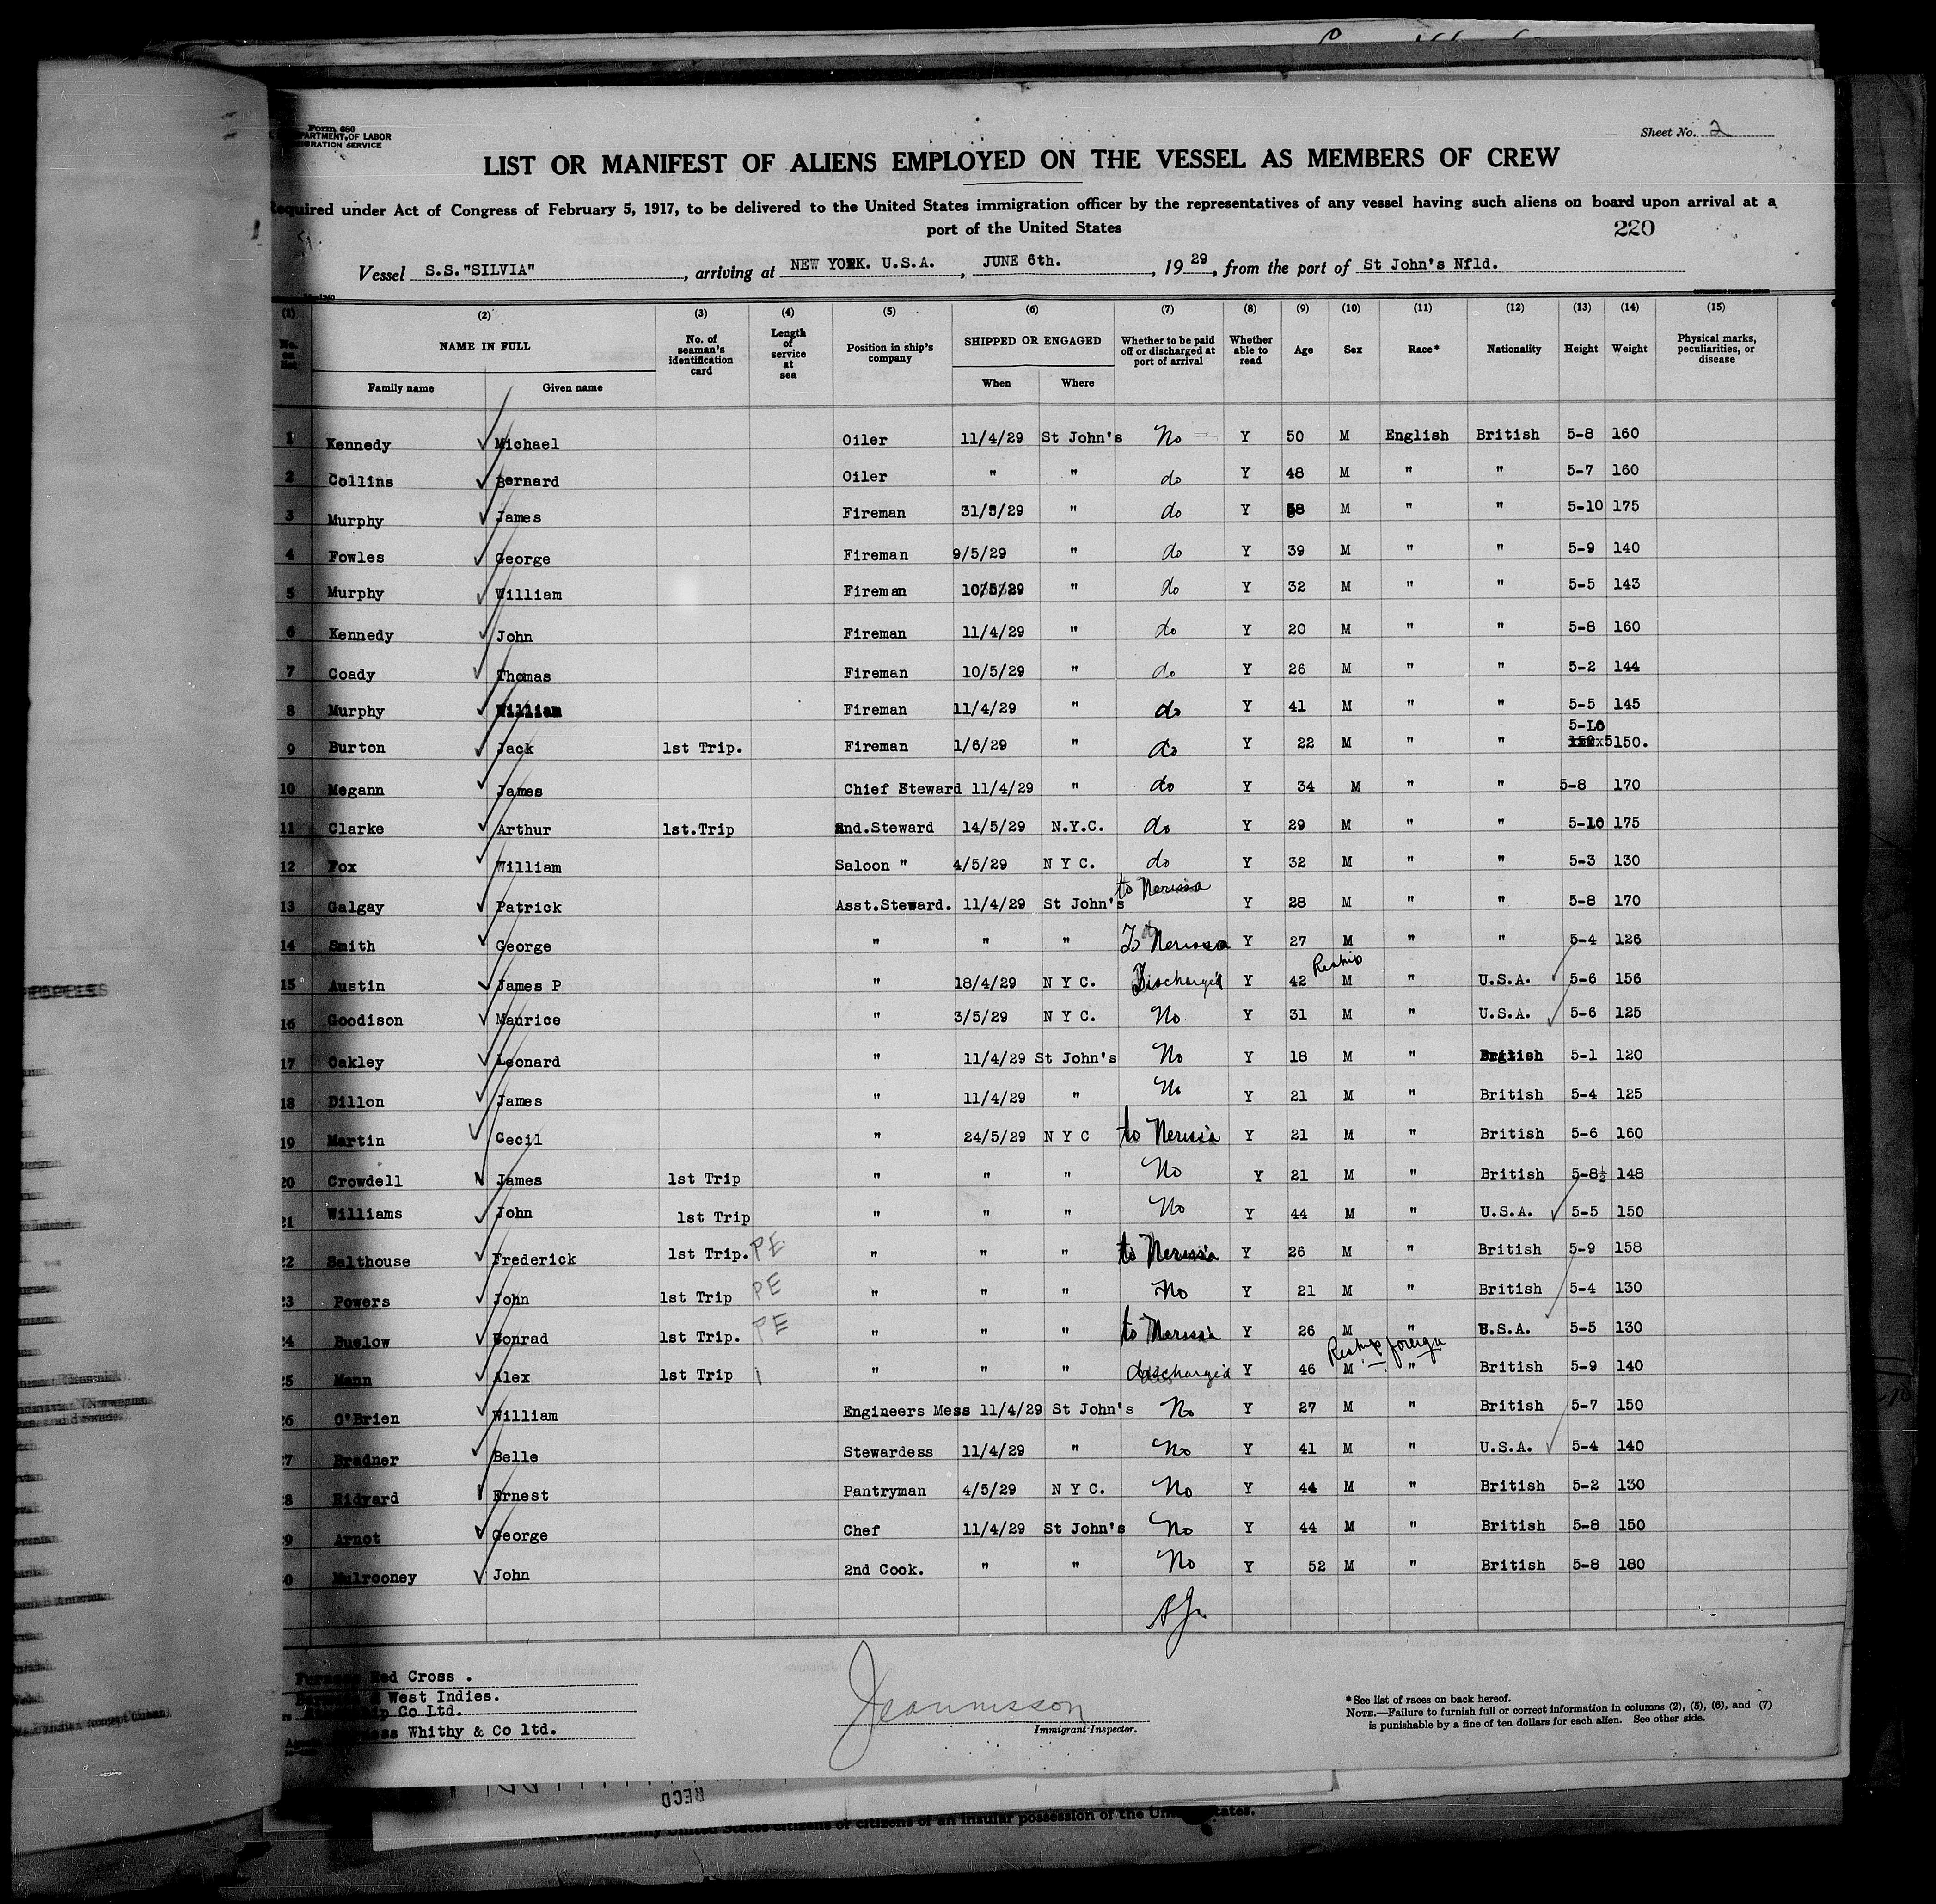 Form 680
DEPARTMENT OF LABOR
IMMIGRATION SERVICE
Sheet No. 2
LIST OR MANIFEST OF ALIENS EMPLOYED ON THE VESSEL AS MEMBERS OF CREW
Required under Act of Congress of February 5, 1917, to be delivered to the United States immigration officer by the representatives of any vessel having such aliens on board upon arrival at a
port of the United States
220
Vessel S.S."SILVIA", arriving at NEW YORK. U.S.A., JUNE 6th., 1929, from the port of St John's Nfld.
(1) (2) (3) (4) (5) (6) (7) (8) (9) (10) (11) (12) (13) (14) (15)
No. on list NAME IN FULL Family name Given name No. of seaman's identification card Length of service at sea Position in ship's company SHIPPED OR ENGAGED When Where Whether to be paid off or discharged at port of arrival Whether able to read Age Sex Race* Nationality Height Weight Physical marks, peculiarities, or disease
1 Kennedy Michael Oiler 11/4/29 St John's No Y 50 M English British 5-8 160
2 Collins Bernard Oiler " " do Y 48 M " " 5-7 160
3 Murphy James Fireman 31/5/29 " do Y 38 M " " 5-10 175
4 Fowles George Fireman 9/5/29 " do Y 39 M " " 5-9 140
5 Murphy William Fireman 10/5/29 " do Y 32 M " " 5-5 143
6 Kennedy John Fireman 11/4/29 " do Y 20 M " " 5-8 160
7 Coady Thomas Fireman 10/5/29 " do Y 26 M " " 5-2 144
8 Murphy William Fireman 11/4/29 " do Y 41 M " " 5-5 145
9 Burton Jack 1st Trip. Fireman 1/6/29 " do Y 22 M " " 5-10 150.
10 Megann James Chief Steward 11/4/29 " do Y 34 M " " 5-8 170
11 Clarke Arthur 1st.Trip 2nd.Steward 14/5/29 N.Y.C. do Y 29 M " " 5-10 175
12 Fox William Saloon " 4/5/29 N Y C. do Y 32 M " " 5-3 130
13 Galgay Patrick Asst.Steward. 11/4/29 St John's to Nerissa Y 28 M " " 5-8 170
14 Smith George " " " To Nerissa Y 27 M " " 5-4 126
15 Austin James P " 18/4/29 N Y C. Discharged Y 42 Reship M " U.S.A. 5-6 156
16 Goodison Maurice " 3/5/29 N Y C. No Y 31 M " U.S.A. 5-6 125
17 Oakley Leonard " 11/4/29 St John's No Y 18 M " British 5-1 120
18 Dillon James " 11/4/29 " No Y 21 M " British 5-4 125
19 Martin Cecil " 24/5/29 N Y C to Nerissa Y 21 M " British 5-6 160
20 Crowdell James 1st Trip " " " No Y 21 M " British 5-8½ 148
21 Williams John 1st Trip " " " No Y 44 M " U.S.A. 5-5 150
22 Salthouse Frederick 1st Trip. PE " " " to Nerissa Y 26 M " British 5-9 158
23 Powers John 1st Trip PE " " " No Y 21 M " British 5-4 130
24 Buelow Conrad 1st Trip. PE " " " to Nerissa Y 26 M " U.S.A. 5-5 130
25 Mann Alex 1st Trip " " " discharged Y 46 Reship foreign M " British 5-9 140
26 O'Brien William Engineers Mess 11/4/29 St John's No Y 27 M " British 5-7 150
27 Bradner Belle Stewardess 11/4/29 " No Y 41 M " U.S.A. 5-4 140
28 Ridyard Ernest Pantryman 4/5/29 N Y C. No Y 44 M " British 5-2 130
29 Arnot George Chef 11/4/29 St John's No Y 44 M " British 5-8 150
30 Mulrooney John 2nd Cook. " " No Y 52 M " British 5-8 180
Furness Red Cross .
Bermuda & West Indies.
Co Ltd.
Furness Whithy & Co ltd.
Immigrant Inspector.
*See list of races on back hereof.
NOTE.—Failure to furnish full or correct information in columns (2), (5), (6), and (7)
is punishable by a fine of ten dollars for each alien. See other side.
RECD
only United States citizens or citizens of an insular possession of the United States.